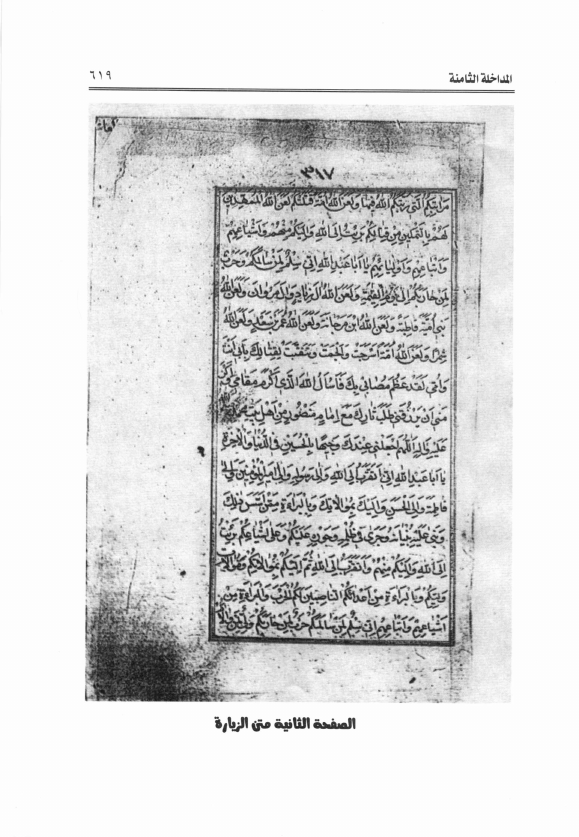 المداخلة الثامنة ٦١٩
٣١٧
مراتبكم التي رتبكم الله فيها ولعن الله امة قتلتكم لعن الله الممهدين
لهم بالتمكين من قتالكم برئت الى الله واليكم منهم واشياعهم
واتباعهم واوليائهم يا ابا عبد الله اني سلم لمن سالمكم وحرب
لمن حاربكم الى يوم القيمة ولعن الله ال زياد وال مروان ولعن الله
بني امية قاطبة ولعن الله ابن مرجانة ولعن الله عمر بن سعد ولعن الله
شمرا ولعن الله امة اسرجت والجمت وتنقبت لقتالك بابي انت
وامي لقد عظم مصابي بك فاسأل الله الذي اكرم مقامك
ان يرزقني طلب ثارك مع امام منصور من اهل بيت محمد صلى الله
عليه واله اللهم اجعلني عندك وجيها بالحسين في الدنيا والاخرة
يا ابا عبد الله اني اتقرب الى الله والى رسوله والى امير المؤمنين والى
فاطمة والى الحسن واليك بموالاتك وبالبراءة ممن اسس ذلك
وبنى عليه بنيانه وجرى في ظلمه وجوره عليكم وعلى اشياعكم برئت
الى الله واليكم منهم واتقرب الى الله ثم اليكم بموالاتكم وموالاة
وليكم وبالبراءة من اعدائكم الناصبين لكم الحرب والبراءة من
اشياعهم واتباعهم اني سلم لمن سالمكم حرب لمن حاربكم وولي لمن والاكم
الصفحة الثانية متن الزيارة